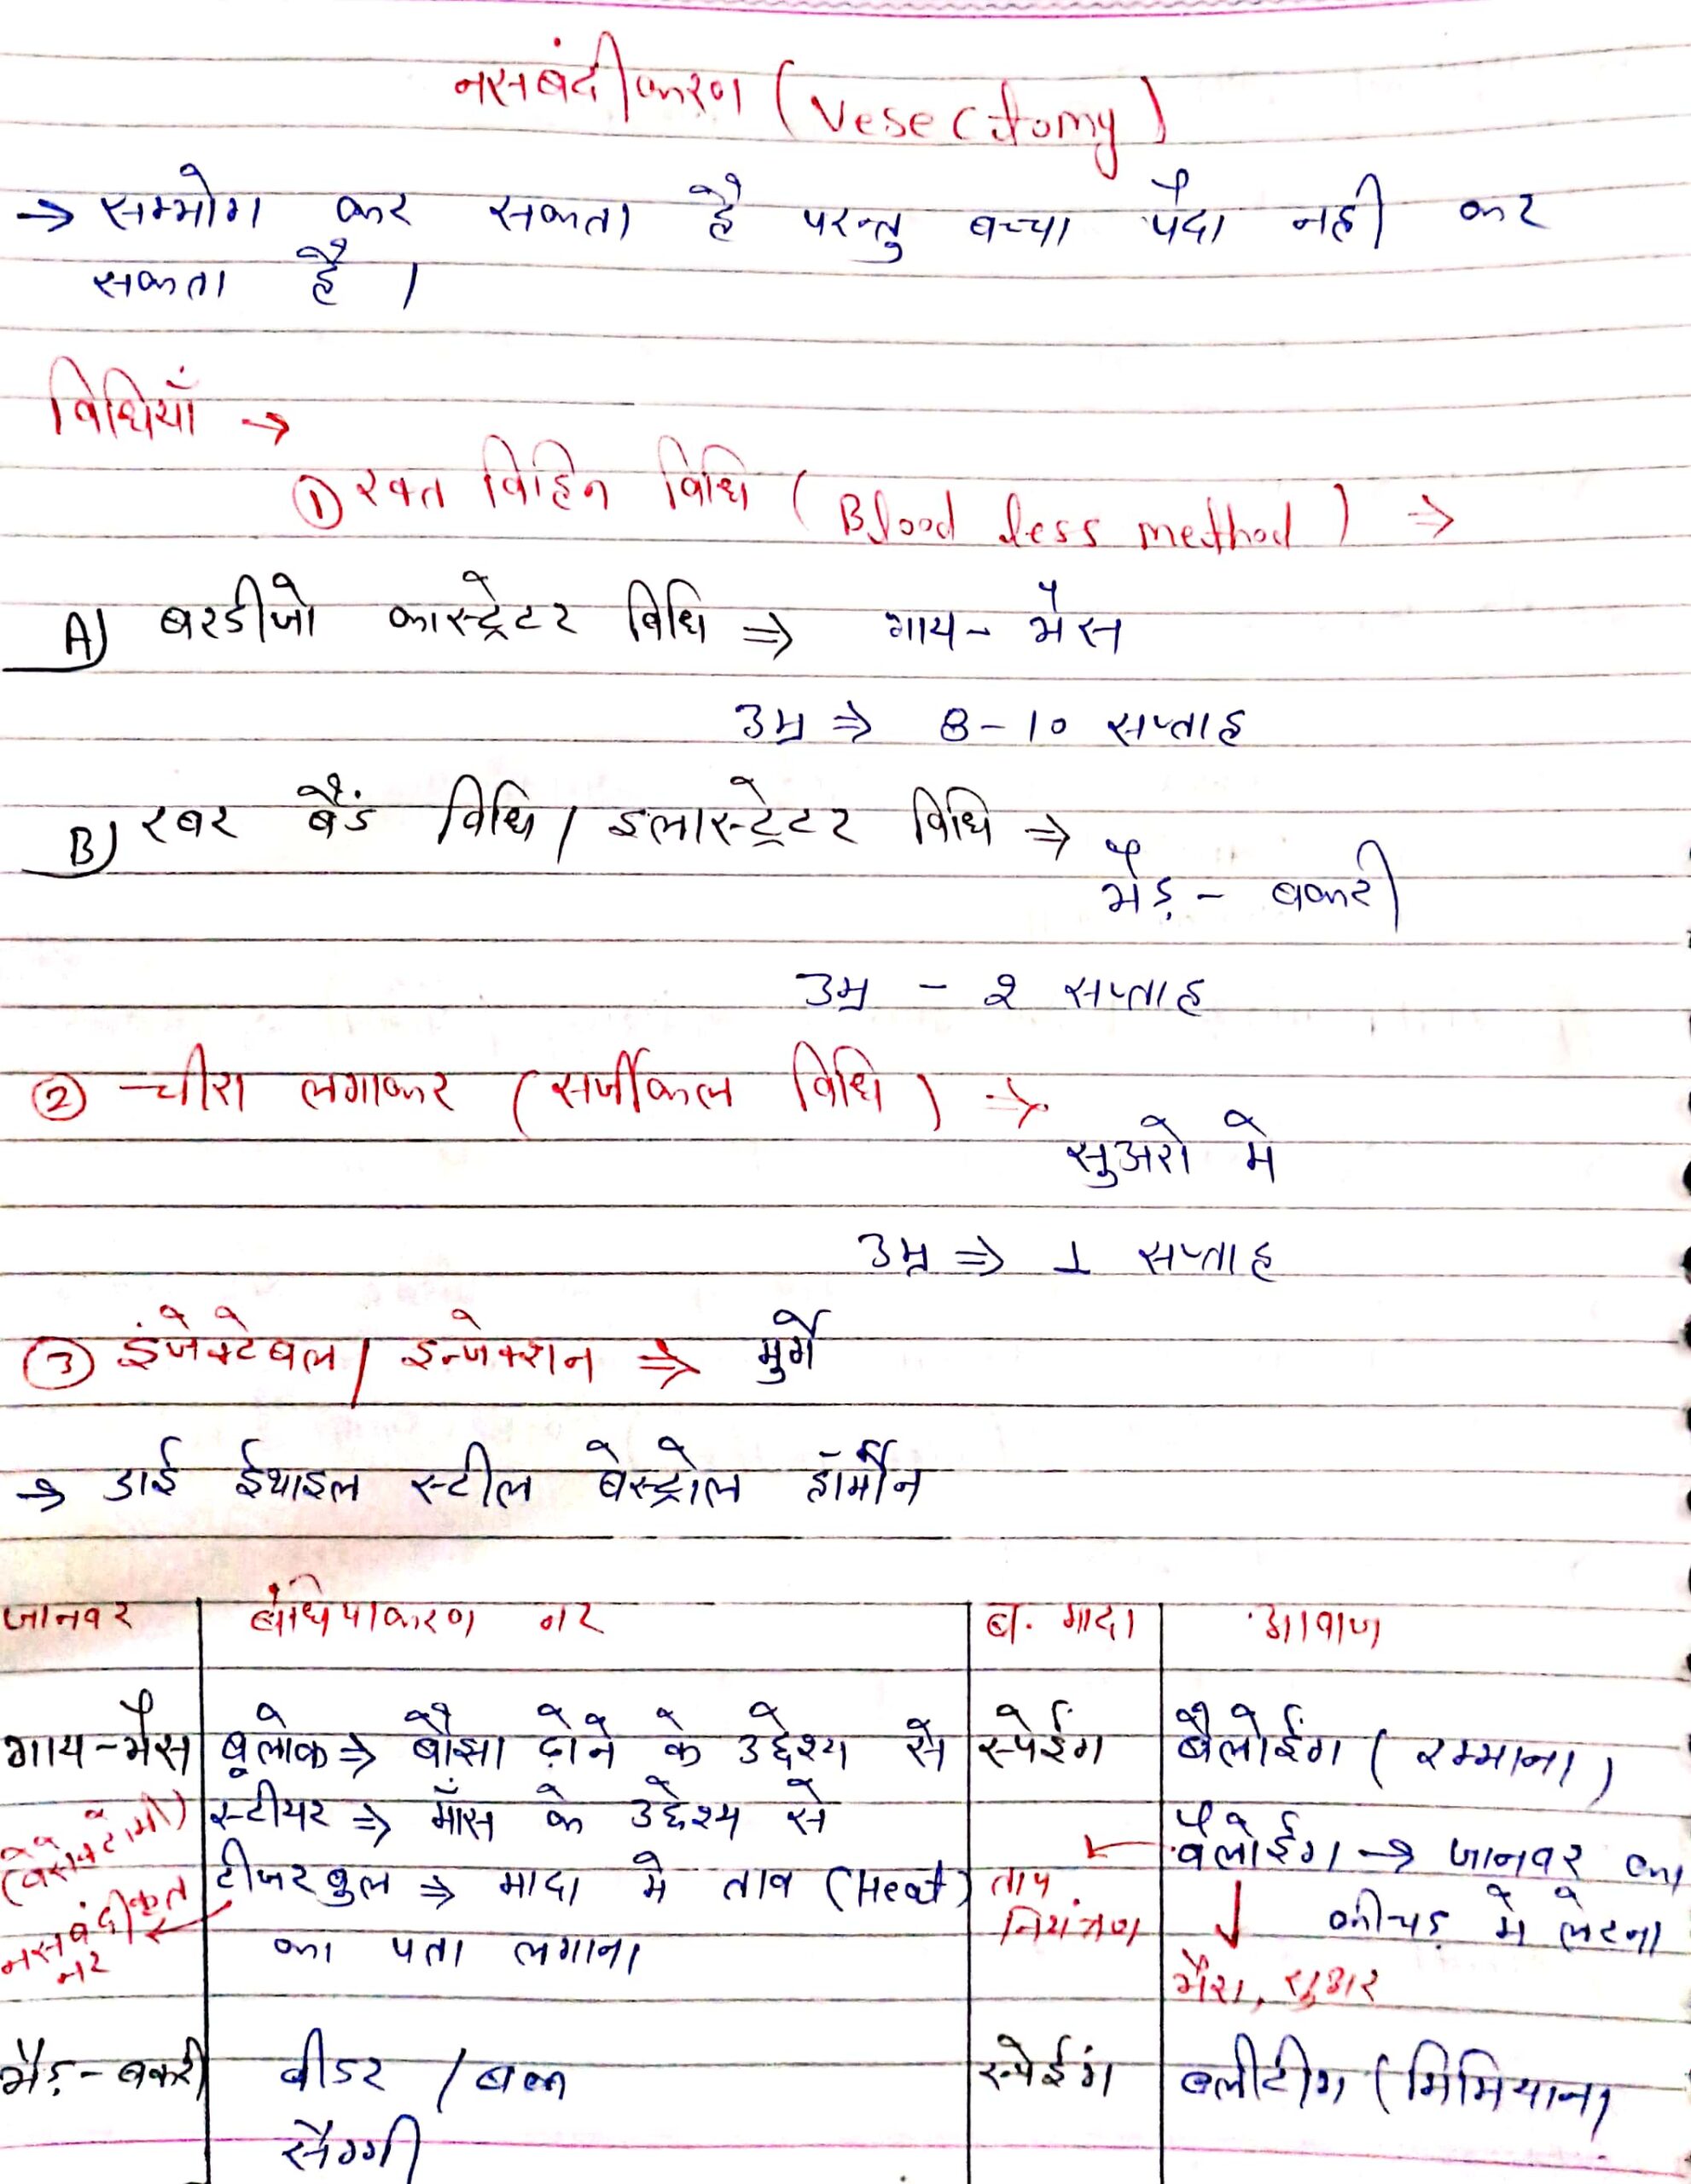 नसबंदीकरण (Vesectomy)
→ सम्भोग कर सकता है परन्तु बच्चा पैदा नही कर
सकता है ।
विधियाँ →
① रक्त विहिन विधि ( Blood less method ) ⇒
A) बरडीजो कास्ट्रेटर विधि ⇒ गाय - भैंस
उम्र ⇒ 8 - 10 सप्ताह
B) रबर बैंड विधि / इलास्ट्रेटर विधि ⇒
भेड़ - बकरी
उम्र - 2 सप्ताह
② चीरा लगाकर (सर्जीकल विधि ) →
सुअरो मे
उम्र ⇒ 1 सप्ताह
③ इंजेक्टेबल / इन्जेक्शन ⇒ मुर्गे
→ डाई ईथाइल स्टील बेस्ट्रोल हॉर्मोन
जानवर बंधियाकरण नर ब. मादा आवाज
गाय-भैंस बूलोक ⇒ बौझा ढ़ोने के उद्देश्य से स्पेईंग बैलोईंग ( रम्माना )
स्टीयर ⇒ माँस के उद्देश्य से
(वेसेक्टोमी) टीजर बुल ⇒ मादा मे ताव (Heat) ताप वैलोईंग → जानवर का
नसबंदीकृत नर का पता लगाना नियंत्रण कीचड़ मे लेटना
भैंस, सुअर
भेड़ - बकरी वीडर / बक स्पेईंग ब्लीटींग (मिमियाना
सैग्गी